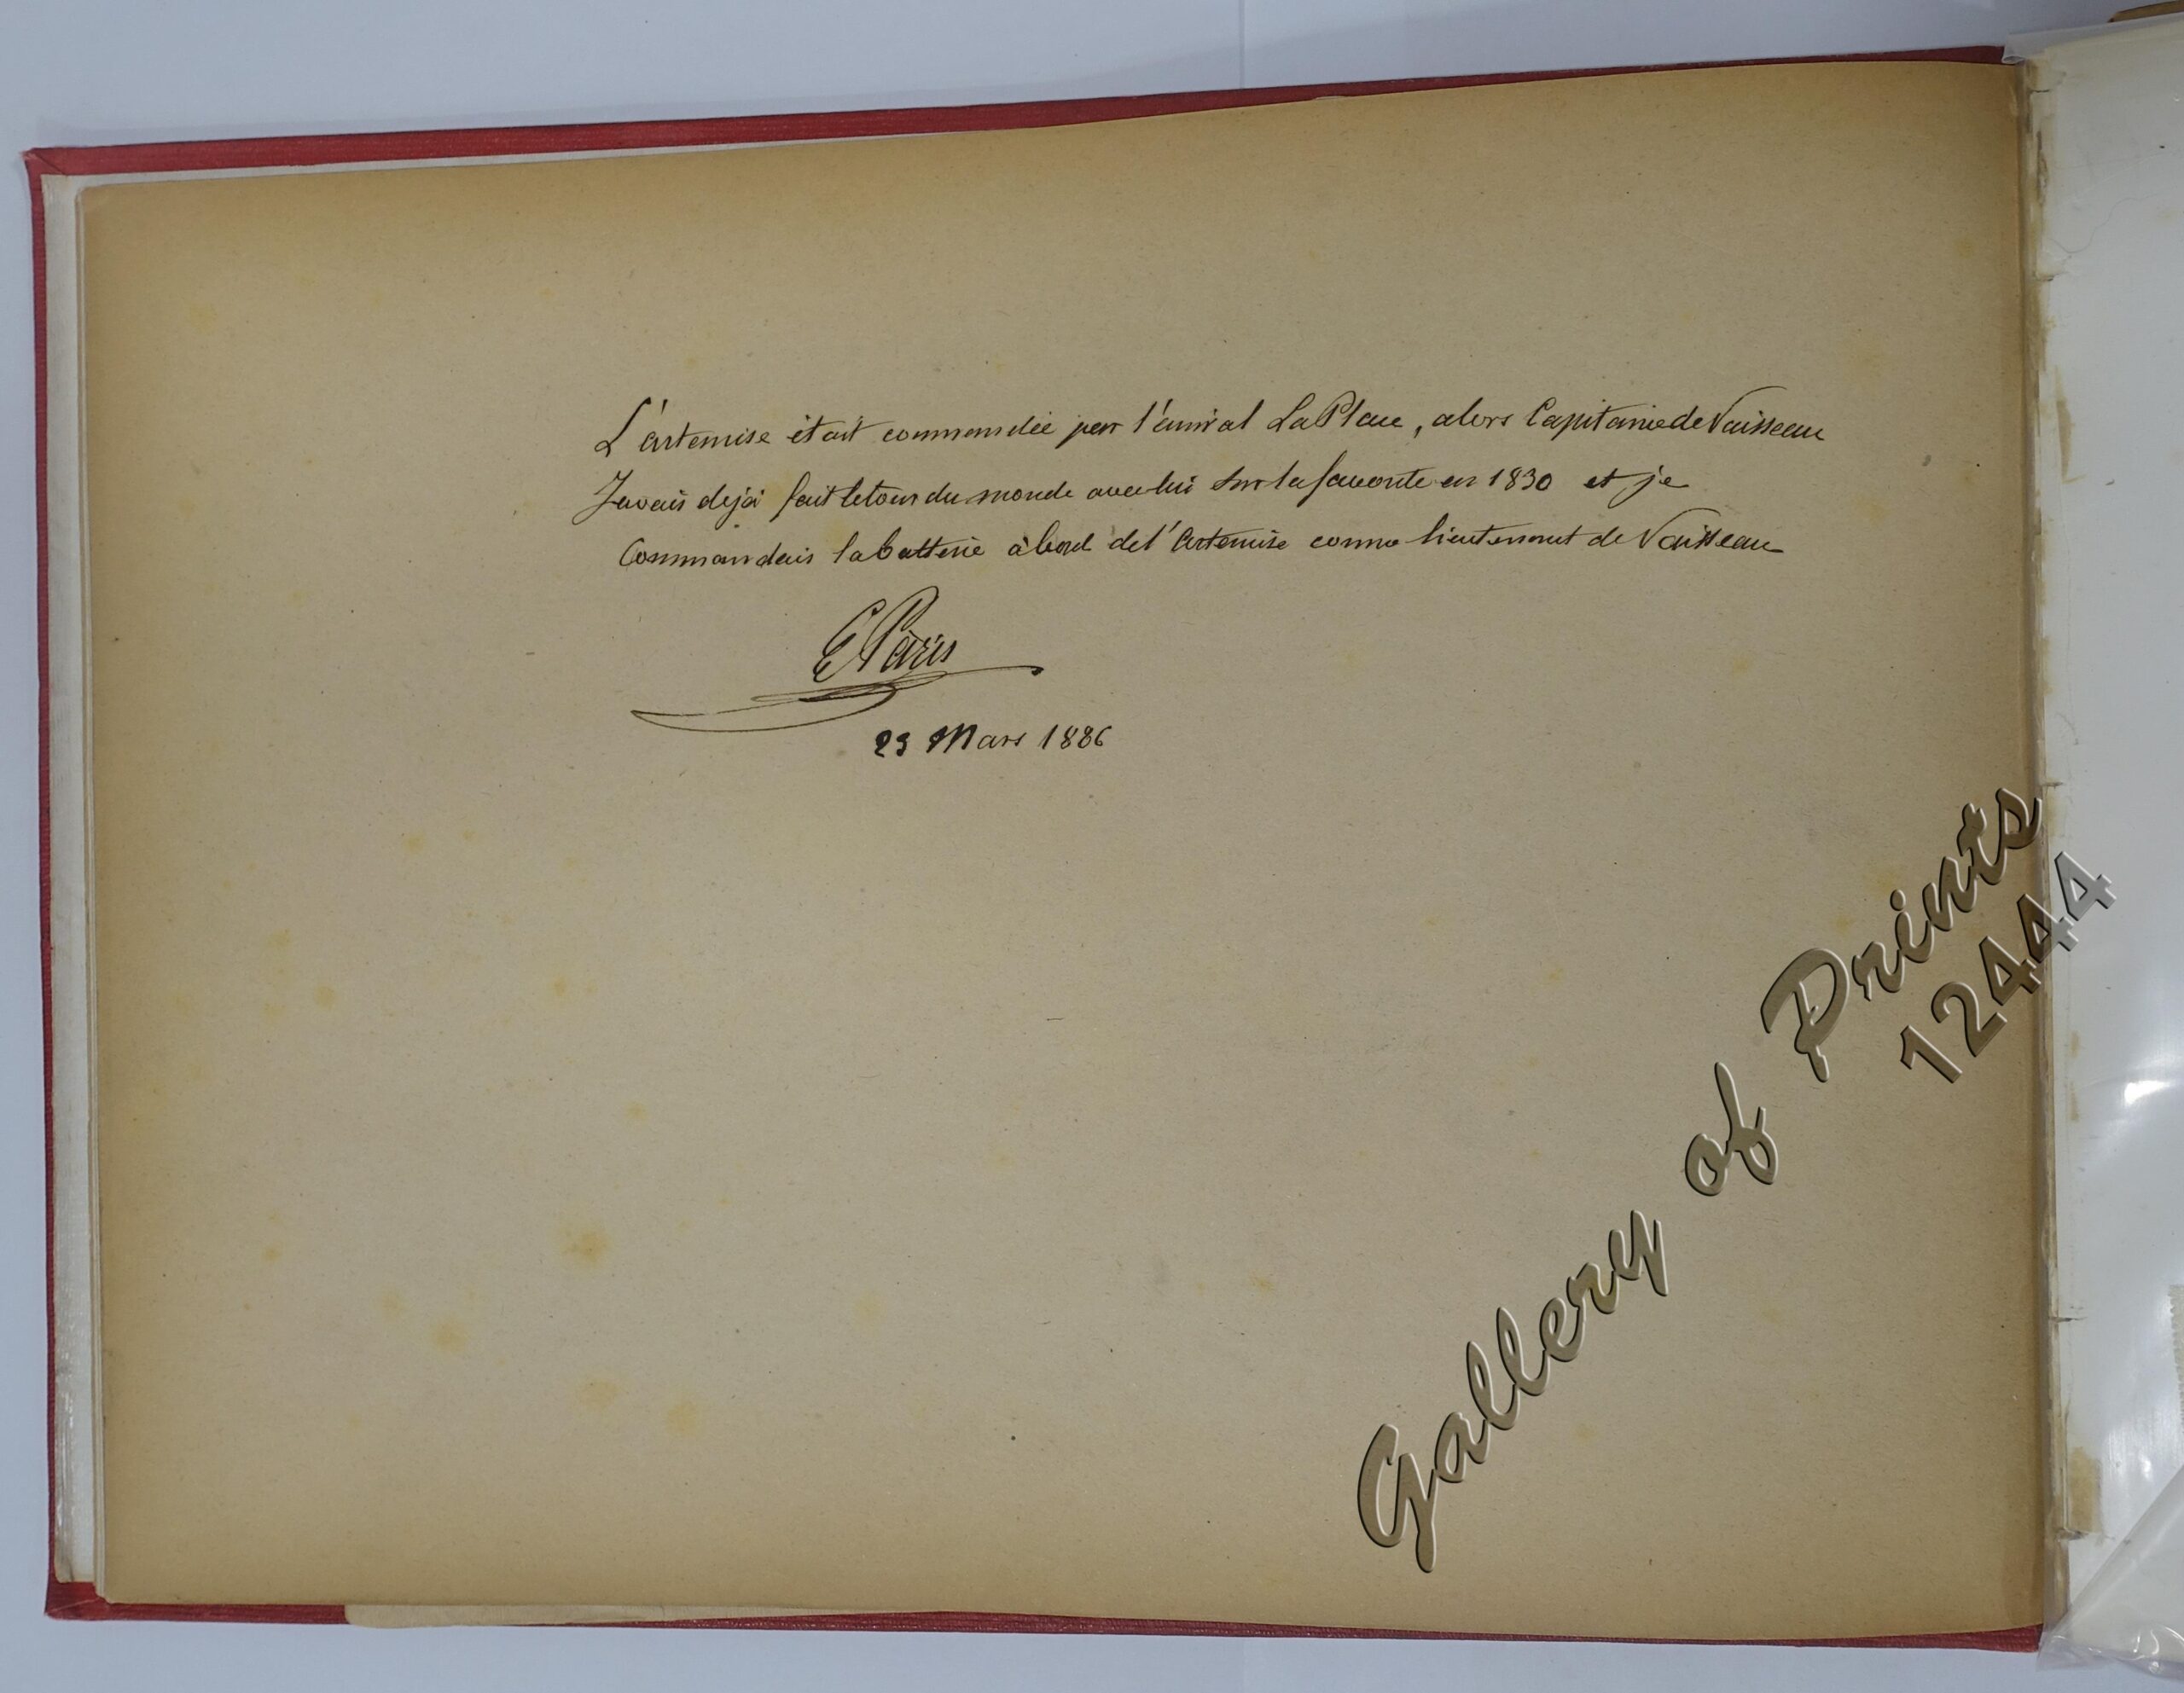 L'artemise était commandée par l'amiral LaPlace, alors Capitaine de Vaisseau
J'avais dejà fait le tour du monde avec lui sur la favorite en 1830 et je
Commandais la batterie à bord de l'Artemise comme lieutenant de Vaisseau
E Pâris
23 Mars 1886
Gallery of Prints
12444